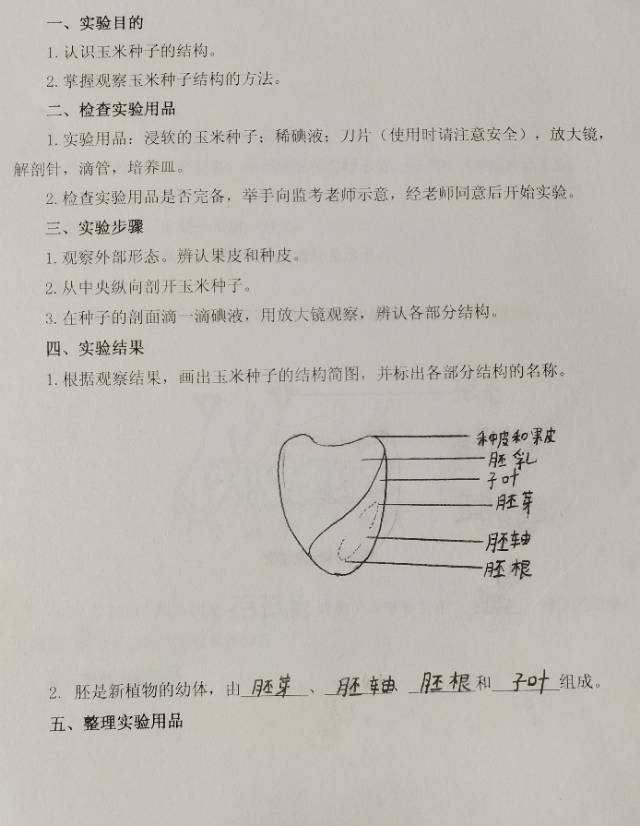 一、实验目的
1.认识玉米种子的结构。
2.掌握观察玉米种子结构的方法。
二、检查实验用品
1.实验用品：浸软的玉米种子；稀碘液；刀片（使用时请注意安全），放大镜，
解剖针，滴管，培养皿。
2.检查实验用品是否完备，举手向监考老师示意，经老师同意后开始实验。
三、实验步骤
1.观察外部形态。辨认果皮和种皮。
2.从中央纵向剖开玉米种子。
3.在种子的剖面滴一滴碘液，用放大镜观察，辨认各部分结构。
四、实验结果
1.根据观察结果，画出玉米种子的结构简图，并标出各部分结构的名称。
种皮和果皮
胚乳
子叶
胚芽
胚轴
胚根
2. 胚是新植物的幼体，由 胚芽 、 胚轴 、 胚根 和 子叶 组成。
五、整理实验用品